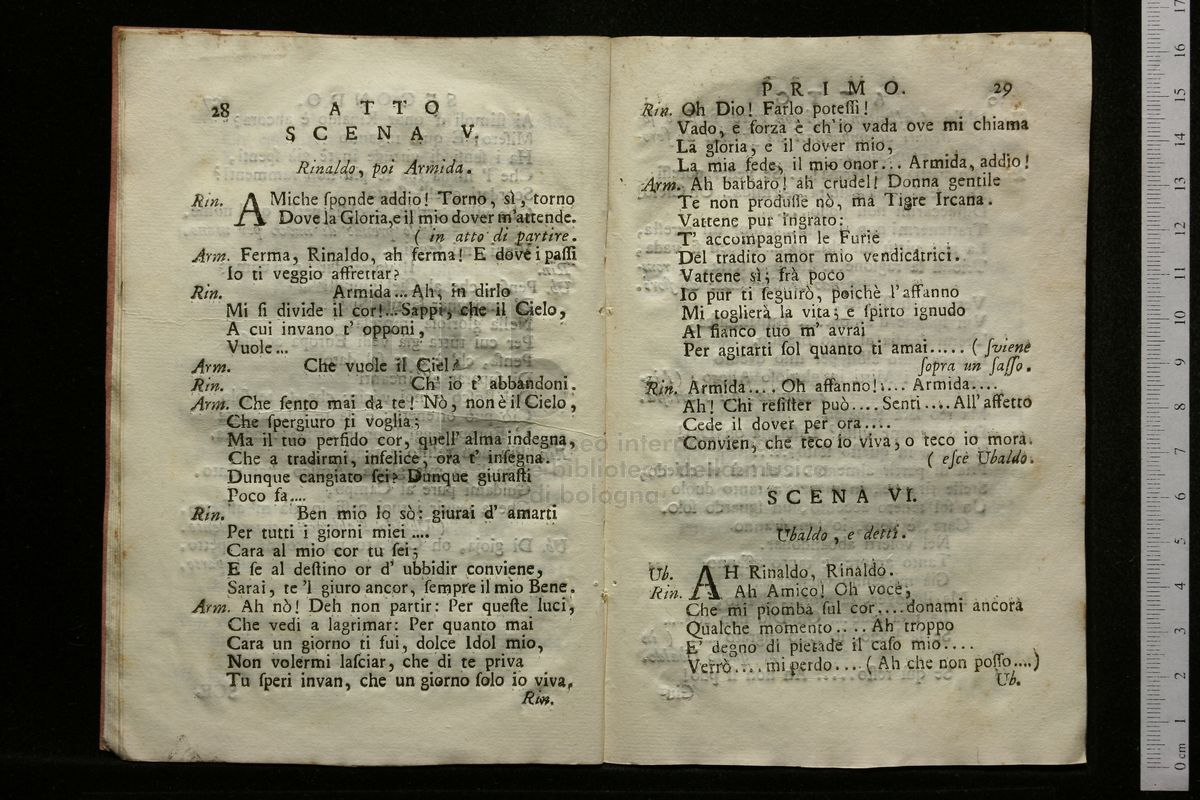 28
ATTO
SCENA V.
Rinaldo, poi Armida.
Rin. AMiche ſponde addio! Torno, sì, torno
Dove la Gloria, e il mio dover m'attende.
( in atto di partire.
Arm. Ferma, Rinaldo, ah ferma! E dove i paſſi
Io ti veggio affrettar?
Rin. Armida... Ah, in dirlo
Mi ſi divide il cor!...Sappi, che il Cielo,
A cui invano t' opponi,
Vuole...
Arm. Che vuole il Ciel?
Rin. Ch' io t' abbandoni.
Arm. Che ſento mai da te! Nò, non è il Cielo,
Che ſpergiuro ti voglia;
Ma il tuo perfido cor, quell' alma indegna,
Che a tradirmi, infelice, ora t' inſegna.
Dunque cangiato ſei? Dunque giuraſti
Poco fa....
Rin. Ben mio lo sò: giurai d' amarti
Per tutti i giorni miei ....
Cara al mio cor tu ſei;
E ſe al deſtino or d' ubbidir conviene,
Sarai, te 'l giuro ancor, ſempre il mio Bene.
Arm. Ah nò! Deh non partir: Per queſte luci,
Che vedi a lagrimar: Per quanto mai
Cara un giorno ti fui, dolce Idol mio,
Non volermi laſciar, che di te priva
Tu ſperi invan, che un giorno ſolo io viva.
Rin.
PRIMO.
29
Rin. Oh Dio! Farlo poteſſi!
Vado, e forza è ch'io vada ove mi chiama
La gloria, e il dover mio,
La mia fede, il mio onor... Armida, addio!
Arm. Ah barbaro! ah crudel! Donna gentile
Te non produſſe nò, ma Tigre Ircana.
Vattene pur ingrato:
T' accompagnin le Furie
Del tradito amor mio vendicatrici.
Vattene sì; frà poco
Io pur ti ſeguirò, poichè l'affanno
Mi toglierà la vita; e ſpirto ignudo
Al fianco tuo m' avrai
Per agitarti ſol quanto ti amai..... ( ſviene
ſopra un ſaſſo.
Rin. Armida.... Oh affanno!.... Armida....
Ah! Chi reſiſter può....Senti....All'affetto
Cede il dover per ora....
Convien, che teco io viva, o teco io mora.
( eſce Ubaldo.
SCENA VI.
Ubaldo, e detti.
Ub. AH Rinaldo, Rinaldo.
Rin. Ah Amico! Oh voce,
Che mi piomba ſul cor....donami ancora
Qualche momento.... Ah troppo
E' degno di pietade il caſo mio....
Verrò....mi perdo....( Ah che non poſſo....)
Ub.